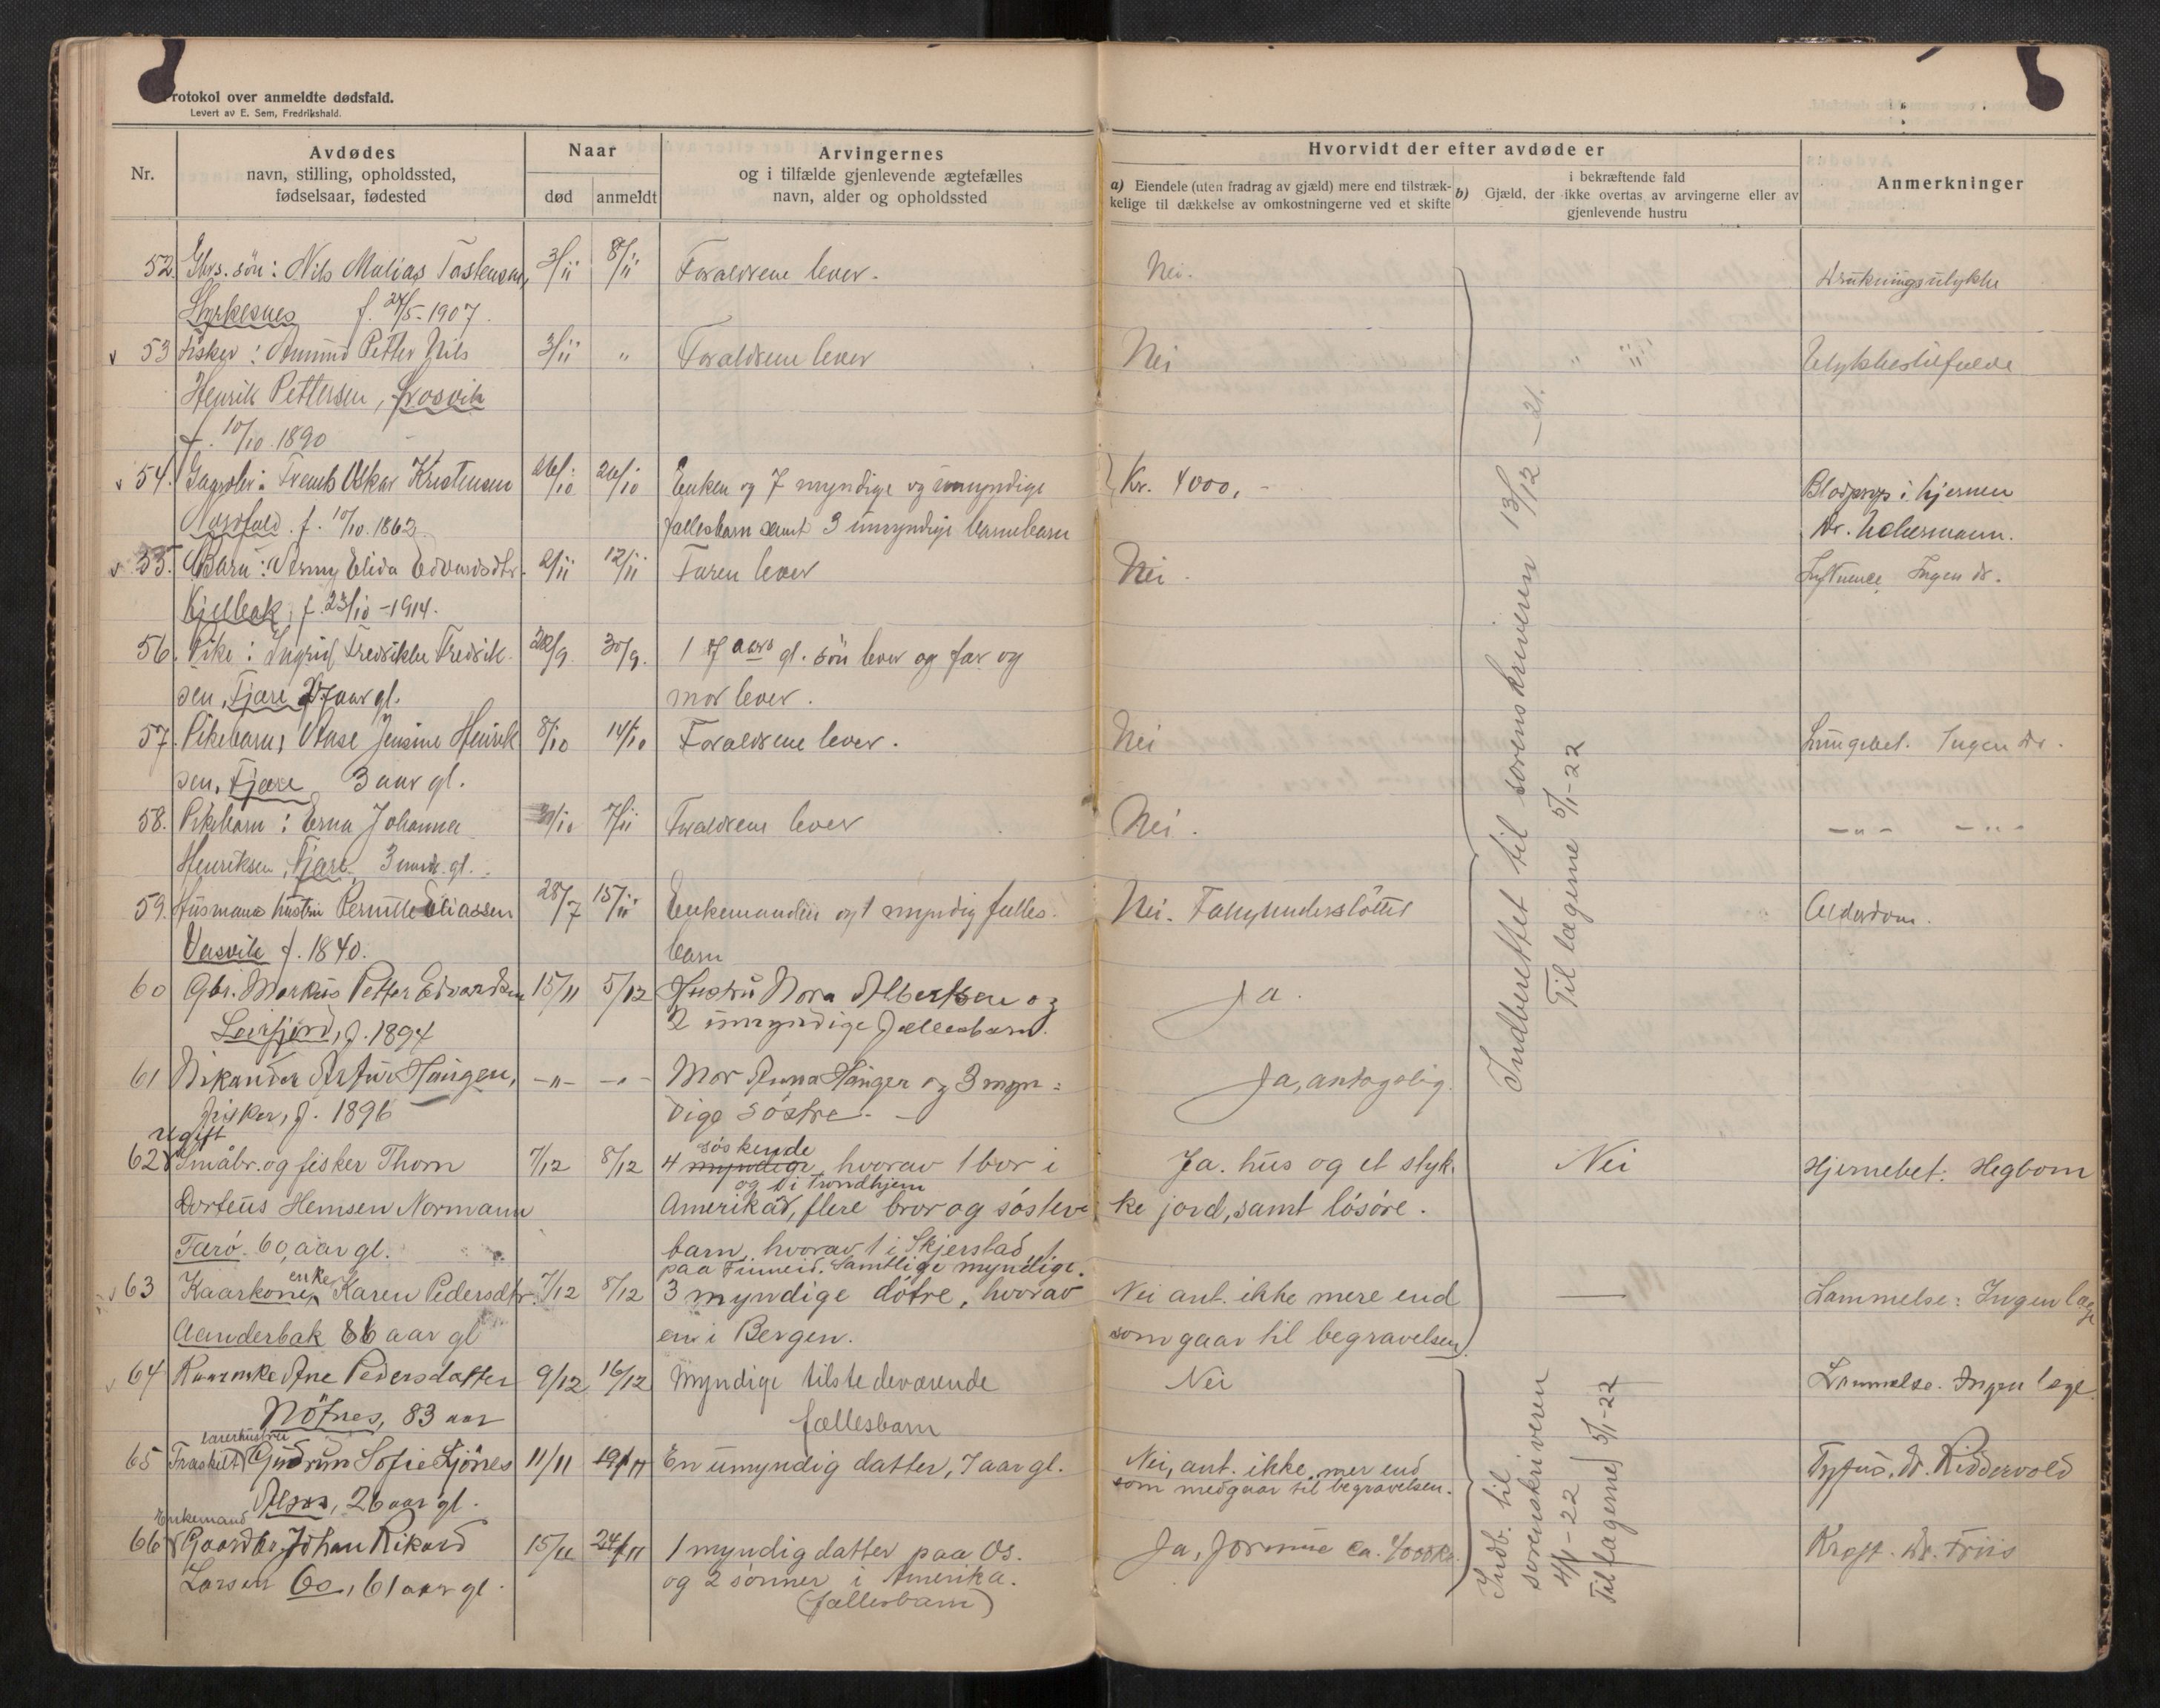 Protokol over anmeldte dødsfald.
Levert av E. Sem, Fredrikshald.
Nr.
Avdødes
navn, stilling, opholdssted,
fødselsaar, fødested
Naar
død
anmeldt
Arvingernes
og i tilfælde gjenlevende ægtefælles
navn, alder og opholdssted
Hvorvidt der efter avdøde er
a) Eiendele (uten fradrag av gjæld) mere end tilstræk-
kelige til dækkelse av omkostningerne ved et skifte
i bekræftende fald
b) Gjæld, der ikke overtas av arvingerne eller av
gjenlevende hustru
Anmerkninger
52. Gbrs. sön: Nils Matias 3/11 8/11 Forældrene lever. Nei. Drukningsulykke
Styrkesnes f. 24/5-1907.
53 Fisker: Amund Petter Nils 3/11 " Forældrene lever Nei Ulykkestilfælde
Henrik Pettersen,
f. 10/10.1890
54. Oskar Kristensen 26/10 Enken og 7 myndige og umyndige Kr. 4000,- Blodprop i hjernen
Nordfold. f. 10/10.1863. fællesbarn samt 3 umyndige barnebarn Dr.
55. Barn: Jenny Elida Edvardsdtr. 2/11 12/11 Faren lever Nei. Ingen dr.
Kjelbak, f. 23/10-1914.
56. Pike: Ingrid Fredrikke Fredrik- 28/9 30/9. 1 7 aars gl. sön lever og far og
sen, Fjære 27 aar gl. mor lever.
57. Pikebarn, Aase Jensine Henrik 8/10 14/10 Forældrene lever. Nei Lungebet. Ingen dr.
sen, Fjære 3 aar gl.
58. Pikebarn: Erna Johanna 7/11 Forældrene lever Nei. -"- -"-
Henriksen, Fjære, 3 mndr. gl.
59. Husmans hustru Pernille Eliassen 28/7 15/11 Enkemanden og 1 myndig fælles- Nei. Fattigunderstöttet Alderdom.
f. 1840. barn
60 Gbr. Markus Petter Edvardsen 15/11 5/12 Hustru Nora Albertsen og Ja.
Leirfjord, f. 1894 2 umyndige fællesbarn.
61 Nikander Artur Haugen, -"- -"- Mor Anna Hauger og 3 myn= Ja, antagelig.
fisker, f. 1896 dige søstre.-
ugift
62 Småbr. og fisker Thom 7/12 8/12 4 myndige søskende hvorav 1 bor i Ja. hus og et styk- Nei Hjernebet. Hegbom
og 1 i Trondhjem
Dorteus Hemsen Normann Amerika, flere bror og søster ke jord, samt løsøre.
Tærö. 60 aar gl. barn, hvorav 1 i Skjerstad
paa Finneid. Samtlige myndige.
63 Kaarkone enke Karen Pedersdtr. 7/12 8/12 3 myndige døtre, hvorav Nei ant. ikke mere end — Lammelse: Ingen læge
Aanderbak 86 aar gl en i Bergen. som gaar til begravelsen.
64 Kaarenke Ane Pedersdatter 9/12 16/12 Myndige tilstedeværende Nei Lammelse. Ingen læge
Nötnes, 83 aar fællesbarn
lærerhustru
65 Fraskilt Gudrun Sofie 11/11 19/11 En umyndig datter, 7 aar gl. Nei, ant. ikke mer end Tyfus. dr. Riddervold
26 aar gl. som medgaar til begravelsen.
Enkemand
66 Gaardbr. Johan Rikard 15/11 24/11 1 myndig datter paa Os. Ja, formue ca. 4000 kr. Kræft. dr. Friis
Larsen Os, 61 aar gl. og 2 sønner i Amerika.
(fællesbarn)
Indberettet til sorenskriveren 13/12-21.
Til lægene 5/1-22
Indb. til
sorenskriveren
4/1-22
Til lægerne 5/1-22